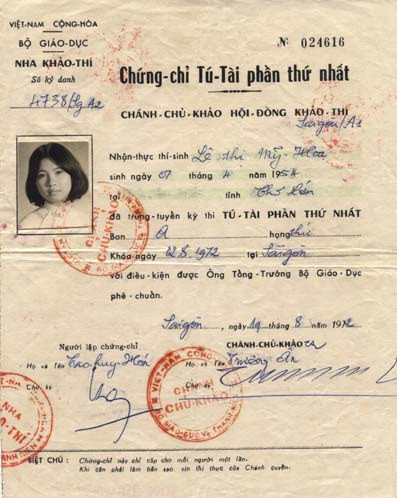 VIỆT-NAM CỘNG-HÒA
BỘ GIÁO-DỤC
NHA KHẢO-THÍ
Số ký danh
4738/Sg A2
№ 024616
Chứng-chỉ Tú-Tài phần thứ nhất
CHÁNH-CHỦ-KHẢO HỘI-ĐỒNG KHẢO-THÍ
Saigon/A1
Nhận-thực thí-sinh Lê thị Mỹ-Hoa
sinh ngày 07 tháng 4 năm 1954
tại tỉnh
đã trúng-tuyển kỳ thi TÚ-TÀI PHẦN THỨ NHẤT
Ban A hạng thứ
Khóa ngày 02.8.1972 tại Saigon
với điều-kiện được Ông Tổng-Trưởng Bộ Giáo-Dục
phê-chuẩn.
Saigon, ngày 19 tháng 8 năm 1972
Người lập chứng-chỉ
Họ và Tên
Chữ ký
CHÁNH-CHỦ-KHẢO
Họ và Tên Trương Ân
Chữ ký
VIỆT-NAM CỘNG
CHÁNH
CHỦ-KHẢO
NHA
KHẢO-THÍ
BIỆT CHÚ: Chứng-chỉ này chỉ cấp cho mỗi người một lần.
Khi cần phải làm bản sao, xin thị thực của Chánh quyền.